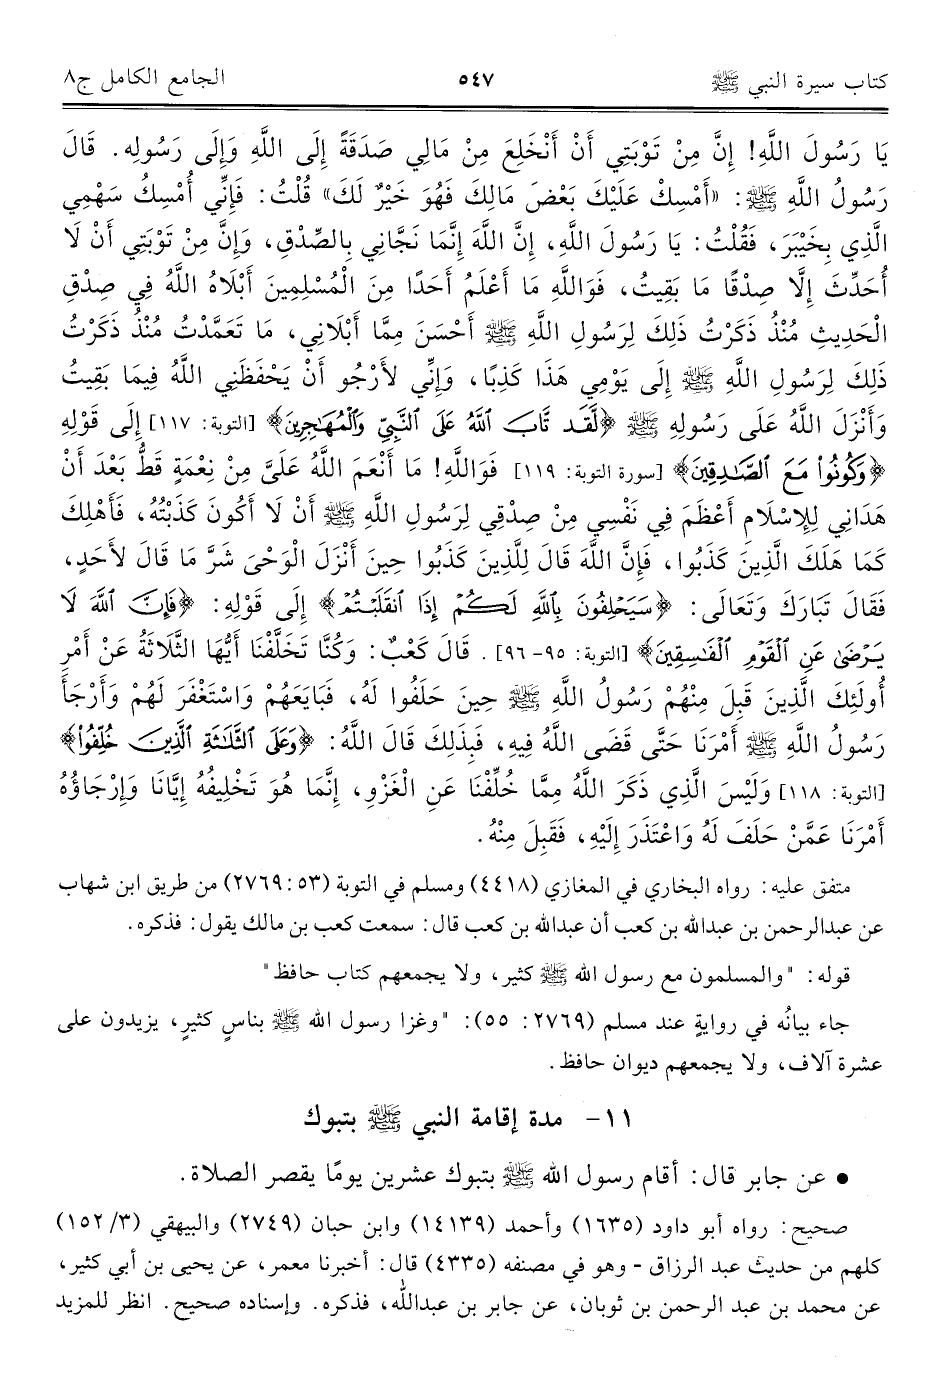 كتاب سيرة النبي ﷺ ٥٤٧ الجامع الكامل ج٨
يَا رَسُولَ اللَّهِ! إِنَّ مِنْ تَوْبَتِي أَنْ أَنْخَلِعَ مِنْ مَالِي صَدَقَةً إِلَى اللَّهِ وَإِلَى رَسُولِهِ. قَالَ
رَسُولُ اللَّهِ ﷺ: «أَمْسِكْ عَلَيْكَ بَعْضَ مَالِكَ فَهُوَ خَيْرٌ لَكَ» قُلْتُ: فَإِنِّي أُمْسِكُ سَهْمِي
الَّذِي بِخَيْبَرَ، فَقُلْتُ: يَا رَسُولَ اللَّهِ، إِنَّ اللَّهَ إِنَّمَا نَجَّانِي بِالصِّدْقِ، وَإِنَّ مِنْ تَوْبَتِي أَنْ لَا
أُحَدِّثَ إِلَّا صِدْقًا مَا بَقِيتُ، فَوَاللَّهِ مَا أَعْلَمُ أَحَدًا مِنَ الْمُسْلِمِينَ أَبْلَاهُ اللَّهُ فِي صِدْقِ
الْحَدِيثِ مُنْذُ ذَكَرْتُ ذَلِكَ لِرَسُولِ اللَّهِ ﷺ أَحْسَنَ مِمَّا أَبْلَانِي، مَا تَعَمَّدْتُ مُنْذُ ذَكَرْتُ
ذَلِكَ لِرَسُولِ اللَّهِ ﷺ إِلَى يَوْمِي هَذَا كَذِبًا، وَإِنِّي لأَرْجُو أَنْ يَحْفَظَنِي اللَّهُ فِيمَا بَقِيتُ
وَأَنْزَلَ اللَّهُ عَلَى رَسُولِهِ ﷺ ﴿لَّقَد تَّابَ ٱللَّهُ عَلَى ٱلنَّبِيِّ وَٱلْمُهَٰجِرِينَ﴾ [التوبة: ١١٧] إِلَى قَوْلِهِ
﴿وَكُونُوا۟ مَعَ ٱلصَّٰدِقِينَ﴾ [سورة التوبة: ١١٩] فَوَاللَّهِ! مَا أَنْعَمَ اللَّهُ عَلَيَّ مِنْ نِعْمَةٍ قَطُّ بَعْدَ أَنْ
هَدَانِي لِلإِسْلَامِ أَعْظَمَ فِي نَفْسِي مِنْ صِدْقِي لِرَسُولِ اللَّهِ ﷺ أَنْ لَا أَكُونَ كَذَبْتُهُ، فَأَهْلِكَ
كَمَا هَلَكَ الَّذِينَ كَذَبُوا، فَإِنَّ اللَّهَ قَالَ لِلَّذِينَ كَذَبُوا حِينَ أَنْزَلَ الْوَحْيَ شَرَّ مَا قَالَ لأَحَدٍ،
فَقَالَ تَبَارَكَ وَتَعَالَى: ﴿سَيَحْلِفُونَ بِٱللَّهِ لَكُمْ إِذَا ٱنقَلَبْتُمْ﴾ إِلَى قَوْلِهِ: ﴿فَإِنَّ ٱللَّهَ لَا
يَرْضَىٰ عَنِ ٱلْقَوْمِ ٱلْفَٰسِقِينَ﴾ [التوبة: ٩٥- ٩٦]. قَالَ كَعْبٌ: وَكُنَّا تَخَلَّفْنَا أَيُّهَا الثَّلَاثَةُ عَنْ أَمْرِ
أُولَئِكَ الَّذِينَ قَبِلَ مِنْهُمْ رَسُولُ اللَّهِ ﷺ حِينَ حَلَفُوا لَهُ، فَبَايَعَهُمْ وَاسْتَغْفَرَ لَهُمْ وَأَرْجَأَ
رَسُولُ اللَّهِ ﷺ أَمْرَنَا حَتَّى قَضَى اللَّهُ فِيهِ، فَبِذَلِكَ قَالَ اللَّهُ: ﴿وَعَلَى ٱلثَّلَٰثَةِ ٱلَّذِينَ خُلِّفُوا۟﴾
[التوبة: ١١٨] وَلَيْسَ الَّذِي ذَكَرَ اللَّهُ مِمَّا خُلِّفْنَا عَنِ الْغَزْوِ، إِنَّمَا هُوَ تَخْلِيفُهُ إِيَّانَا وَإِرْجَاؤُهُ
أَمْرَنَا عَمَّنْ حَلَفَ لَهُ وَاعْتَذَرَ إِلَيْهِ، فَقَبِلَ مِنْهُ.
متفق عليه: رواه البخاري في المغازي (٤٤١٨) ومسلم في التوبة (٢٧٦٩:٥٣) من طريق ابن شهاب
عن عبدالرحمن بن عبدالله بن كعب أن عبدالله بن كعب قال: سمعت كعب بن مالك يقول: فذكره.
قوله: "والمسلمون مع رسول الله ﷺ كثير، ولا يجمعهم كتاب حافظ"
جاء بيانُه في روايةٍ عند مسلم (٢٧٦٩: ٥٥): "وغزا رسول الله ﷺ بناسٍ كثيرٍ، يزيدون على
عشرة آلاف، ولا يجمعهم ديوان حافظ.
١١- مدة إقامة النبي ﷺ بتبوك
● عن جابر قال: أقام رسول الله ﷺ بتبوك عشرين يومًا يقصر الصلاة.
صحيح: رواه أبو داود (١٦٣٥) وأحمد (١٤١٣٩) وابن حبان (٢٧٤٩) والبيهقي (٣/ ١٥٢)
كلهم من حديث عبد الرزاق - وهو في مصنفه (٤٣٣٥) قال: أخبرنا معمر، عن يحيى بن أبي كثير،
عن محمد بن عبد الرحمن بن ثوبان، عن جابر بن عبدالله، فذكره. وإسناده صحيح. انظر للمزيد